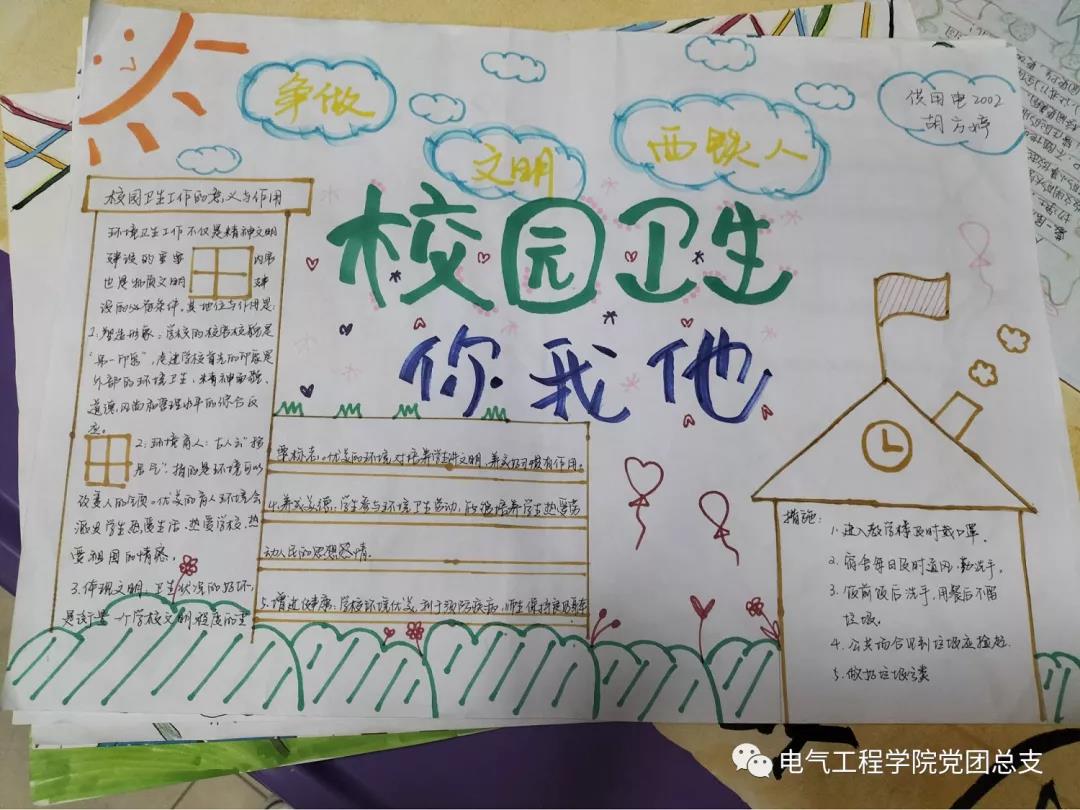 争做
文明
西铁人
供用电2002
胡方婷
校园卫生
你我他
校园卫生工作的意义与作用
环境卫生工作不仅是精神文明
建设的重要内容
也是物质文明建
设的必备条件,其地位与作用是:
1.塑造形象:学校的校容校貌是
"第一印象",走进学校首先的印象是
外部的环境卫生,精神面貌,
道德,风尚和管理水平的综合反
应。
2.环境育人:古人云"移
居气"指的是环境可以
改变人的气质。优美的育人环境会
激发学生热爱生活、热爱学校、热
爱祖国的情感。
3.体现文明。卫生状况的好坏,
是衡量一个学校文明程度的重
要标志。优美的环境,对培养学生讲文明、养成好习惯有作用。
4.养成美德:学生参与环境卫生劳动,能够培养学生热爱劳
动人民的思想感情。
5.增进健康:学校环境优美,利于预防疾病,师生保持
措施:
1.进入教学楼及时戴口罩。
2.宿舍每日及时通风,勤洗手。
3.饭前饭后洗手,用餐后不留
垃圾。
4.公共场合见到垃圾应捡起
5.做好垃圾分类
电气工程学院党团总支